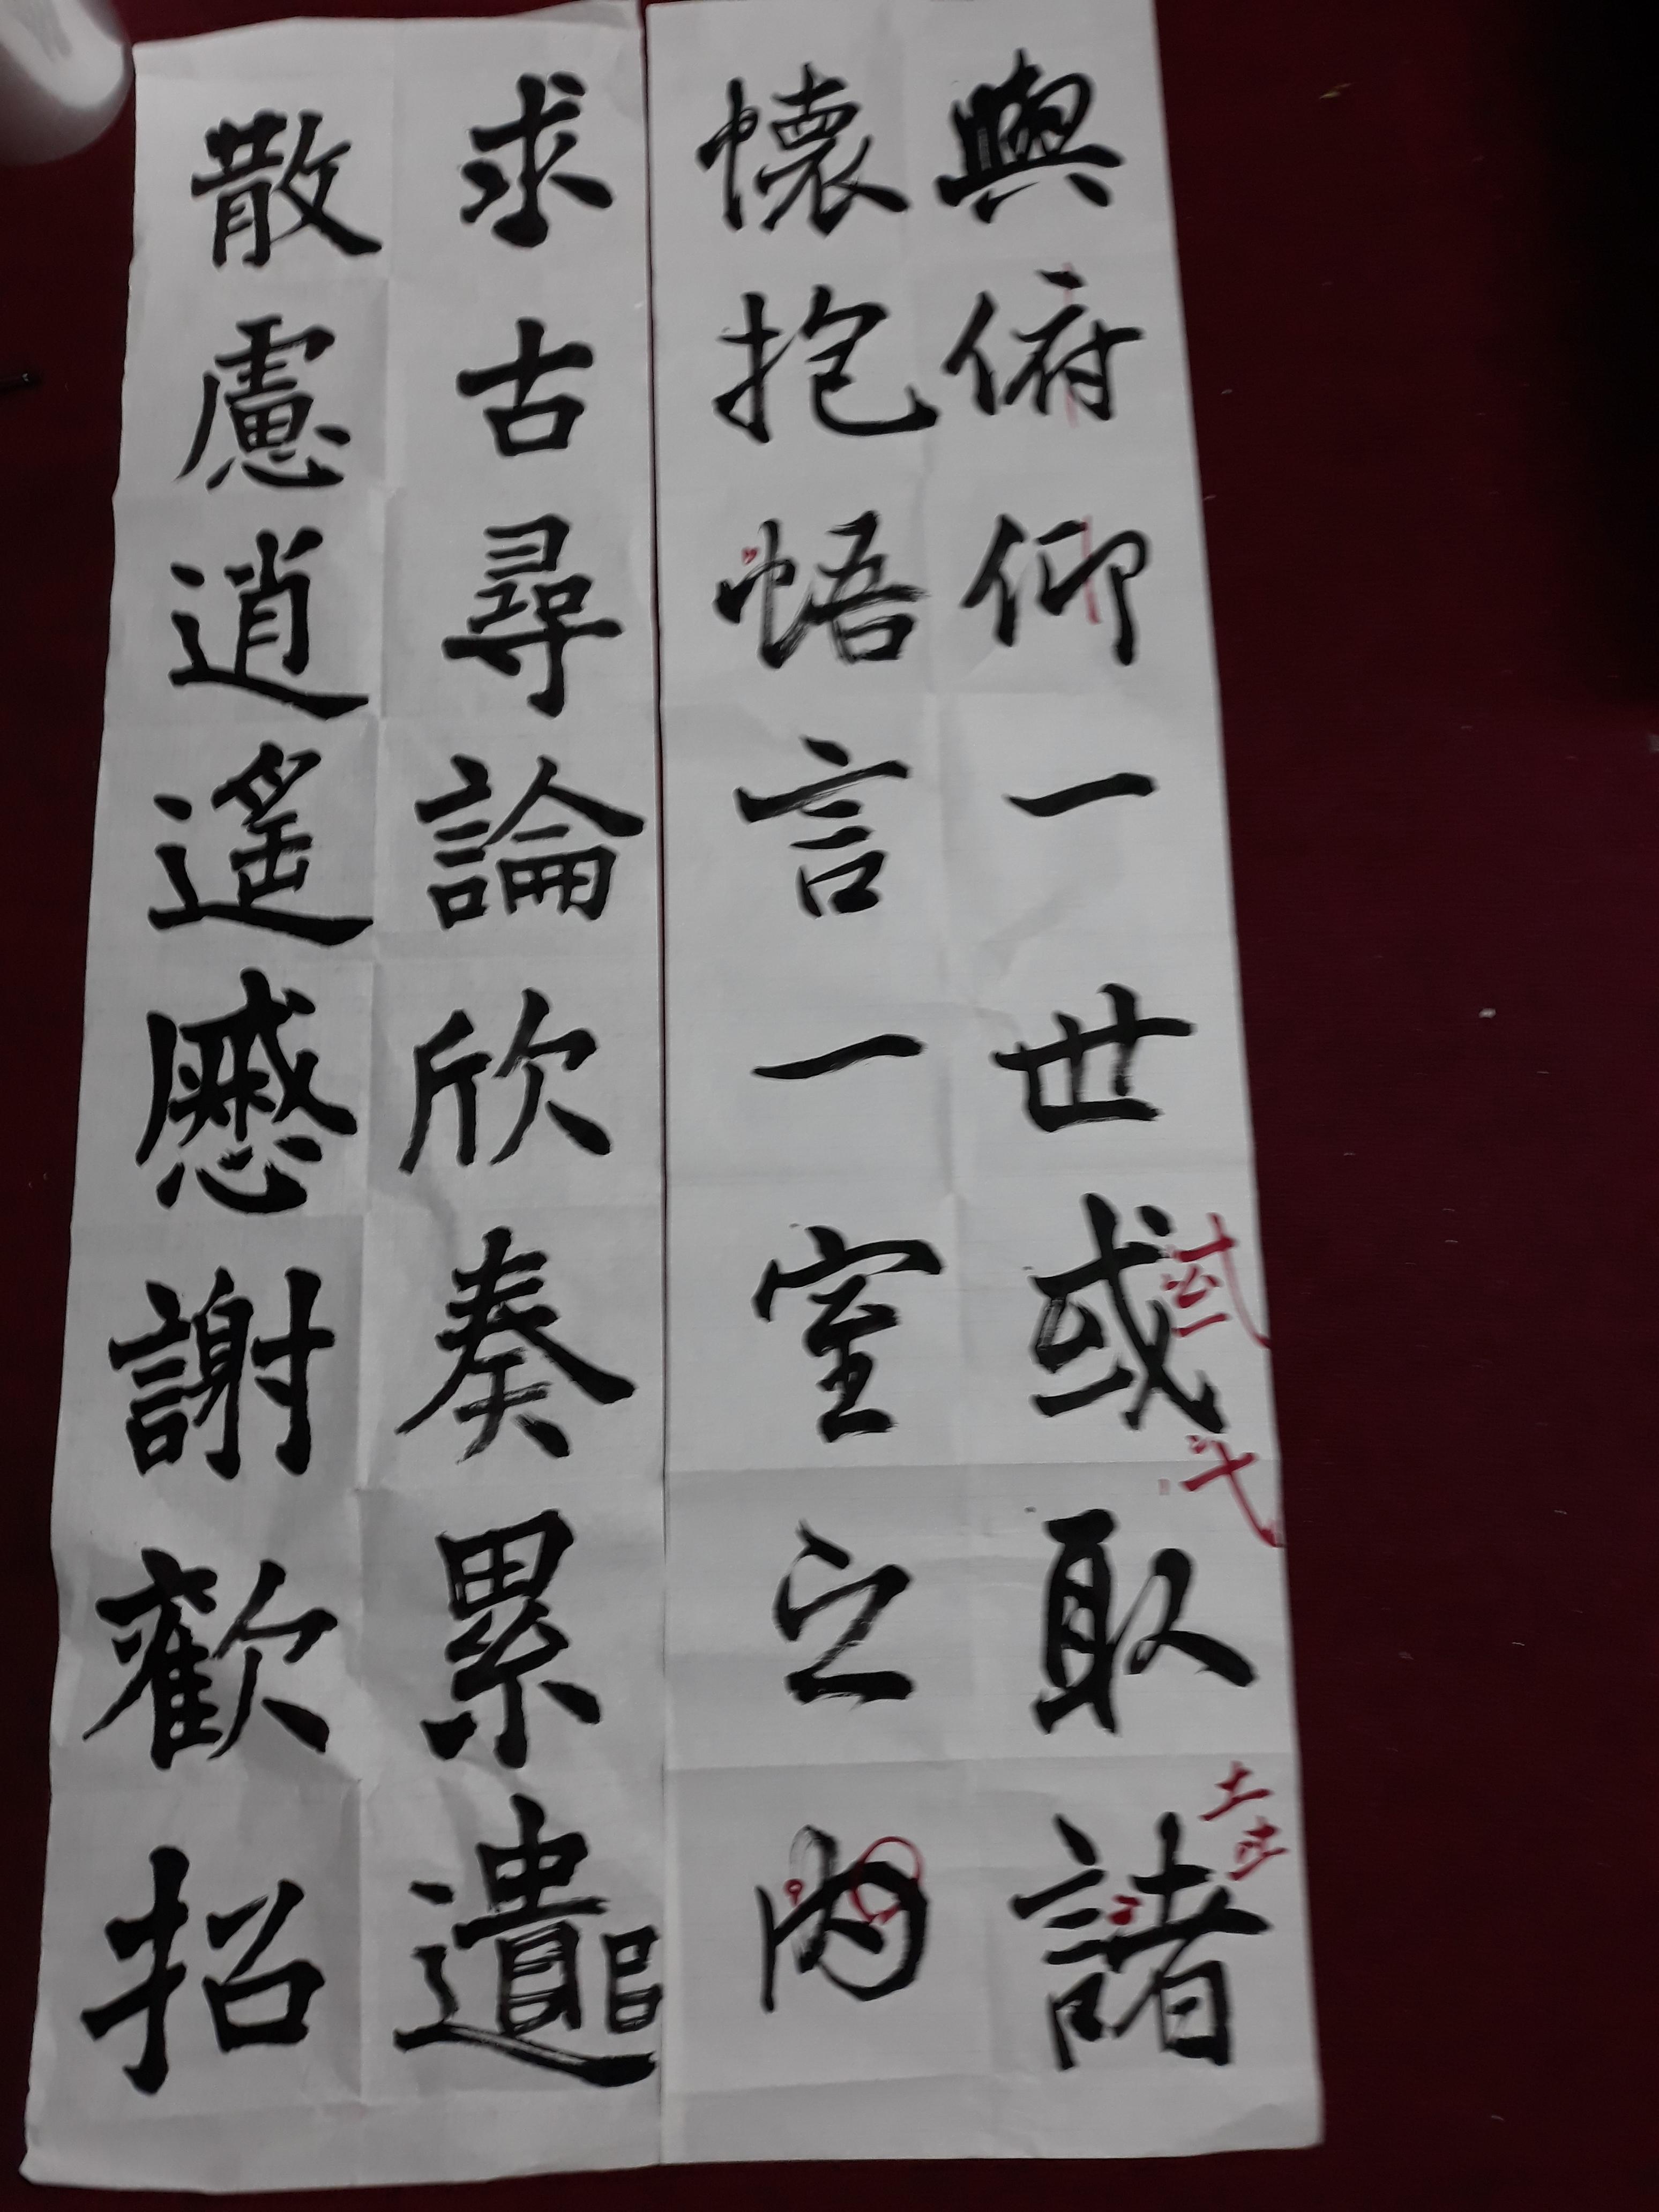 與俯仰一世或取諸
懷抱悟言一室之内
求古尋論欣奏累遣
散慮逍遙慼謝歡招